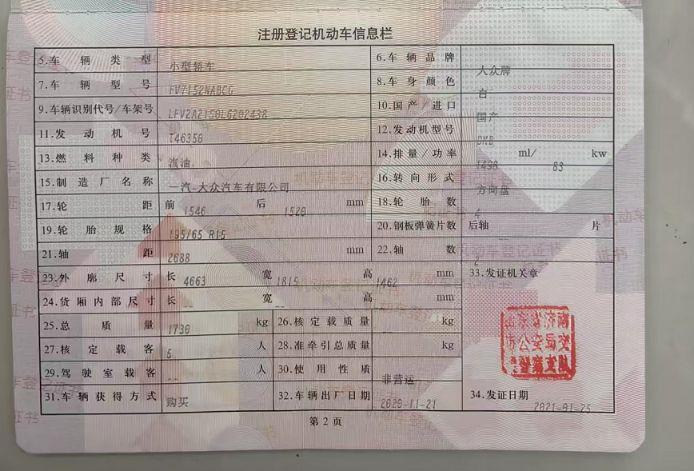 注册登记机动车信息栏
5.车辆类型 小型轿车 6.车辆品牌 大众牌
7.车辆型号 FV7152NABCG 8.车身颜色 白
9.车辆识别代号/车架号 10.国产/进口 国产
11.发动机号 T46356 12.发动机型号 DKB
13.燃料种类 汽油 14.排量/功率 1498 ml/ 83 kw
15.制造厂名称 一汽-大众汽车有限公司 16.转向形式 方向盘
17.轮距 前 1546 后 1520 mm 18.轮胎数 4
19.轮胎规格 195/65 R15 20.钢板弹簧片数 后轴 片
21.轴距 2688 mm 22.轴数 2
23.外廓尺寸 长 4663 宽 1815 高 1462 mm 33.发证机关章
24.货厢内部尺寸 长 -- 宽 -- 高 -- mm
25.总质量 1730 kg 26.核定载质量 -- kg
27.核定载客 5 人 28.准牵引总质量 -- kg
29.驾驶室载客 -- 人 30.使用性质 非营运
31.车辆获得方式 购买 32.车辆出厂日期 2020-11-21 34.发证日期 2021-01-25
第2页